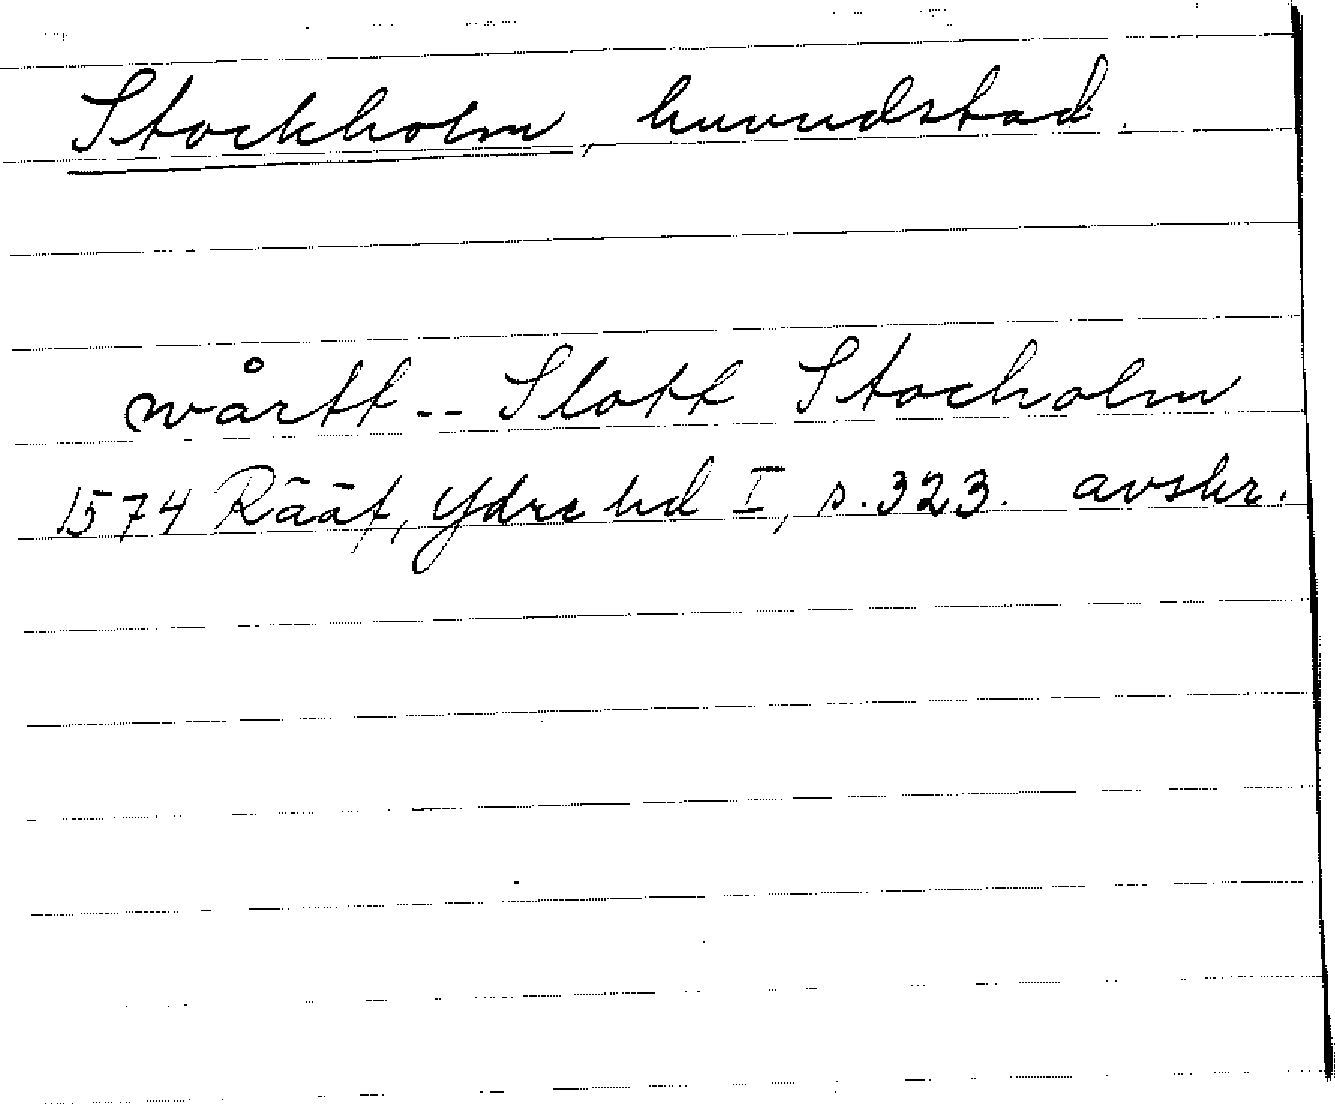 Stockholm, huvudstad.
wårtt -- Slott Stocholm
1574 Rääf, Ydre hd I, s. 323. avskr.